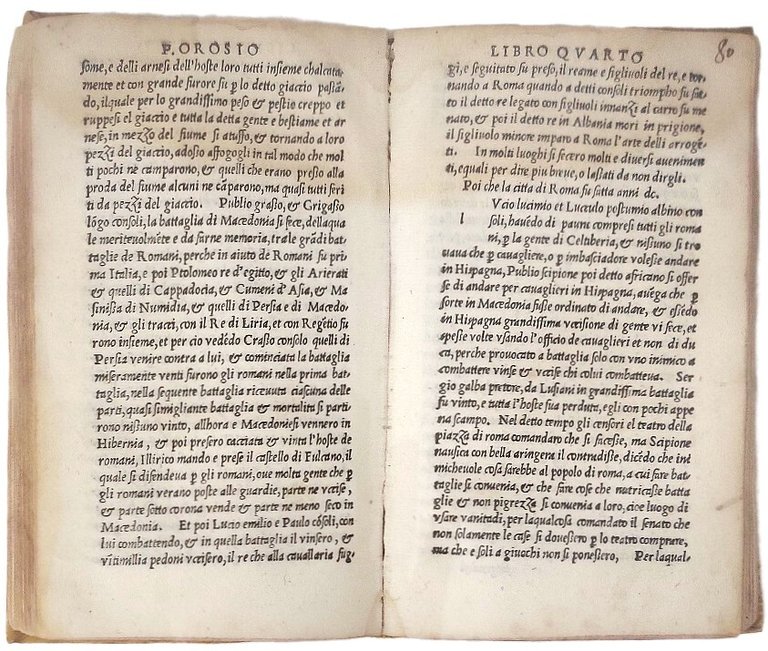 P. OROSIO
some, e delli arnesi dell'hoste loro tutti insieme chalcata
mente et con grande furore su ꝑ lo detto giaccio passā
do, il quale per lo grandissimo peso & pestio creppo et
ruppesi el giaccio e tutta la detta gente e bestiame et ar
nese, in mezzo del fiume si atuffo, & tornando a loro
pezzi del giaccio, adosso affogogli in tal modo che mol
ti pochi ne camparono, & quelli che erano presso alla
proda del fiume alcuni ne cāparono, ma quasi tutti feri
ti da pezzi del giaccio. Publio grasso, & Grigasso
lōgo consoli, la battaglia di Macedonia si fece, della qua
le meritevolmēte e da farne memoria, tra le grādi bat-
taglie de Romani, perche in aiuto de Romani fu pri
ma Italia, e poi Ptolomeo re d'egitto, & gli Arierati
& quelli di Cappadocia, & Cumeni d'Asia, & Ma
sinissa di Numidia, & quelli di Persia e di Macedo
nia, & gli tracci, con il Re di Liria, et con Regetio fu
rono insieme, et per cio vedēdo Crasso consolo quelli di
Persia venire contra a lui, & cominciata la battaglia
miseramente venti furono gli romani nella prima bat-
taglia, nella sequente battaglia ricevuta ciascuna delle
parti, quasi simigliante battaglia & mortalita si parti
rono nissuno vinto, allhora e Macedoniesi vennero in
Hibernia, & poi presero cacciata & vinta l'hoste de
romani, Illirico mando e prese il castello di Fulcano, il
quale si difendeva ꝑ gli romani, ove molta gente che ꝑ
gli romani verano poste alle guardie, parte ne vccise,
& parte sotto corona vende & parte ne meno seco in
Macedonia. Et poi Lucio emilio e Paulo cōsoli, con
lui combattendo, & in quella battaglia il vinsero, &
vītimillia pedoni vccisero, il re che alla cavallaria fug-
LIBRO QVARTO
80
gi, e seguitato fu preso, il reame e figliuoli del re, e tor-
nando a Roma quando a detti consoli triompho fu fat
to il detto re legato con figliuoli innanzi al carro fu me
nato, & poi il detto re in Albania mori in prigione,
il figliuolo minore imparo a Roma l'arte delli arroge-
ti. In molti luoghi si fecero molti e diversi avenimen
ti, equali per dire piu breve, o lassati da non dirgli.
Poi che la citta di Roma fu fatta anni dc.
l Vcio lucinio et Luculo postumio albino con
soli, havēdo di paura compresi tutti gli roma
ni, ꝑ la gente di Celtiberia, & nissuno si tro
vava che ꝑ cavagliere, o ꝑ imbasciadore volesse andare
in Hispagna, Publio scipione poi detto africano si offer
se di andare per cavaglieri in Hispagna, avēga che ꝑ
sorte in Macedonia fusse ordinato di andare, & essēdo
in Hispagna grandissima vccisione di gente vi fece, et
spesse volte vsando l'officio de cavaglieri et non di du
ca, perche provocato a battaglia solo con vno inimico a
combattere vinse & vccise chi colui combatteva. Ser
gio galba pretore, da Lusiani in grandissima battaglia
fu vinto, e tutta l'hoste sua perduta, egli con pochi appe
na scampo. Nel detto tempo gli censori el teatro della
piazza di roma comandaro che si facesse, ma Scipione
nausica con bella aringera il contradisse, dicēdo che ini
michevole cosa sarebbe al popolo di roma, a cui fare bat-
taglie si convenia, & che fare cose che nutricasse batta
glie & non pigrezza si convenia a loro, cioe luogo di
vsare vanitadi, per laqualcosa comandato il senato che
non solamente le case si dovessero ꝑ lo teatro comprare,
ma che e soli a giuochi non si ponessero, Per laqual-